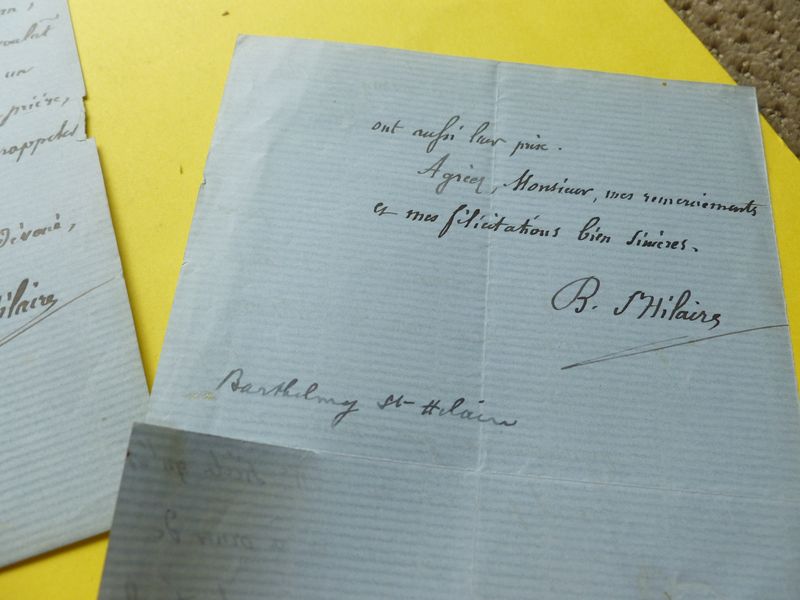 un
prière,
rappeler
dévoué,
Hilaire
ont aussi leur prix.
Agréez, Monsieur, mes remerciements
et mes félicitations bien sincères.
B. St Hilaire
Barthelmy St Hilaire